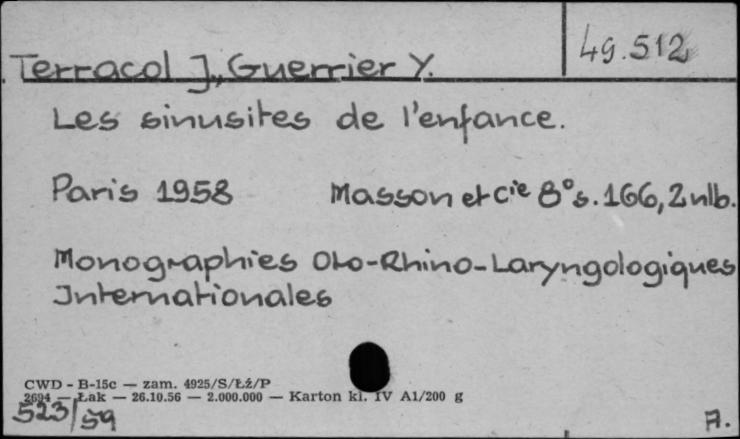 49.512
Terracol J., Guerrier Y.
Les sinusites de l'enfance.
Paris 1958 Masson et Cie 8° s. 166, 2 nlb.
Monographies Oto-Rhino-Laryngologiques
Internationales
CWD - B-15c — zam. 4925/S/Łż/P
2694 — Łak — 26.10.56 — 2.000.000 — Karton kl. IV A1/200 g
523/59
A.